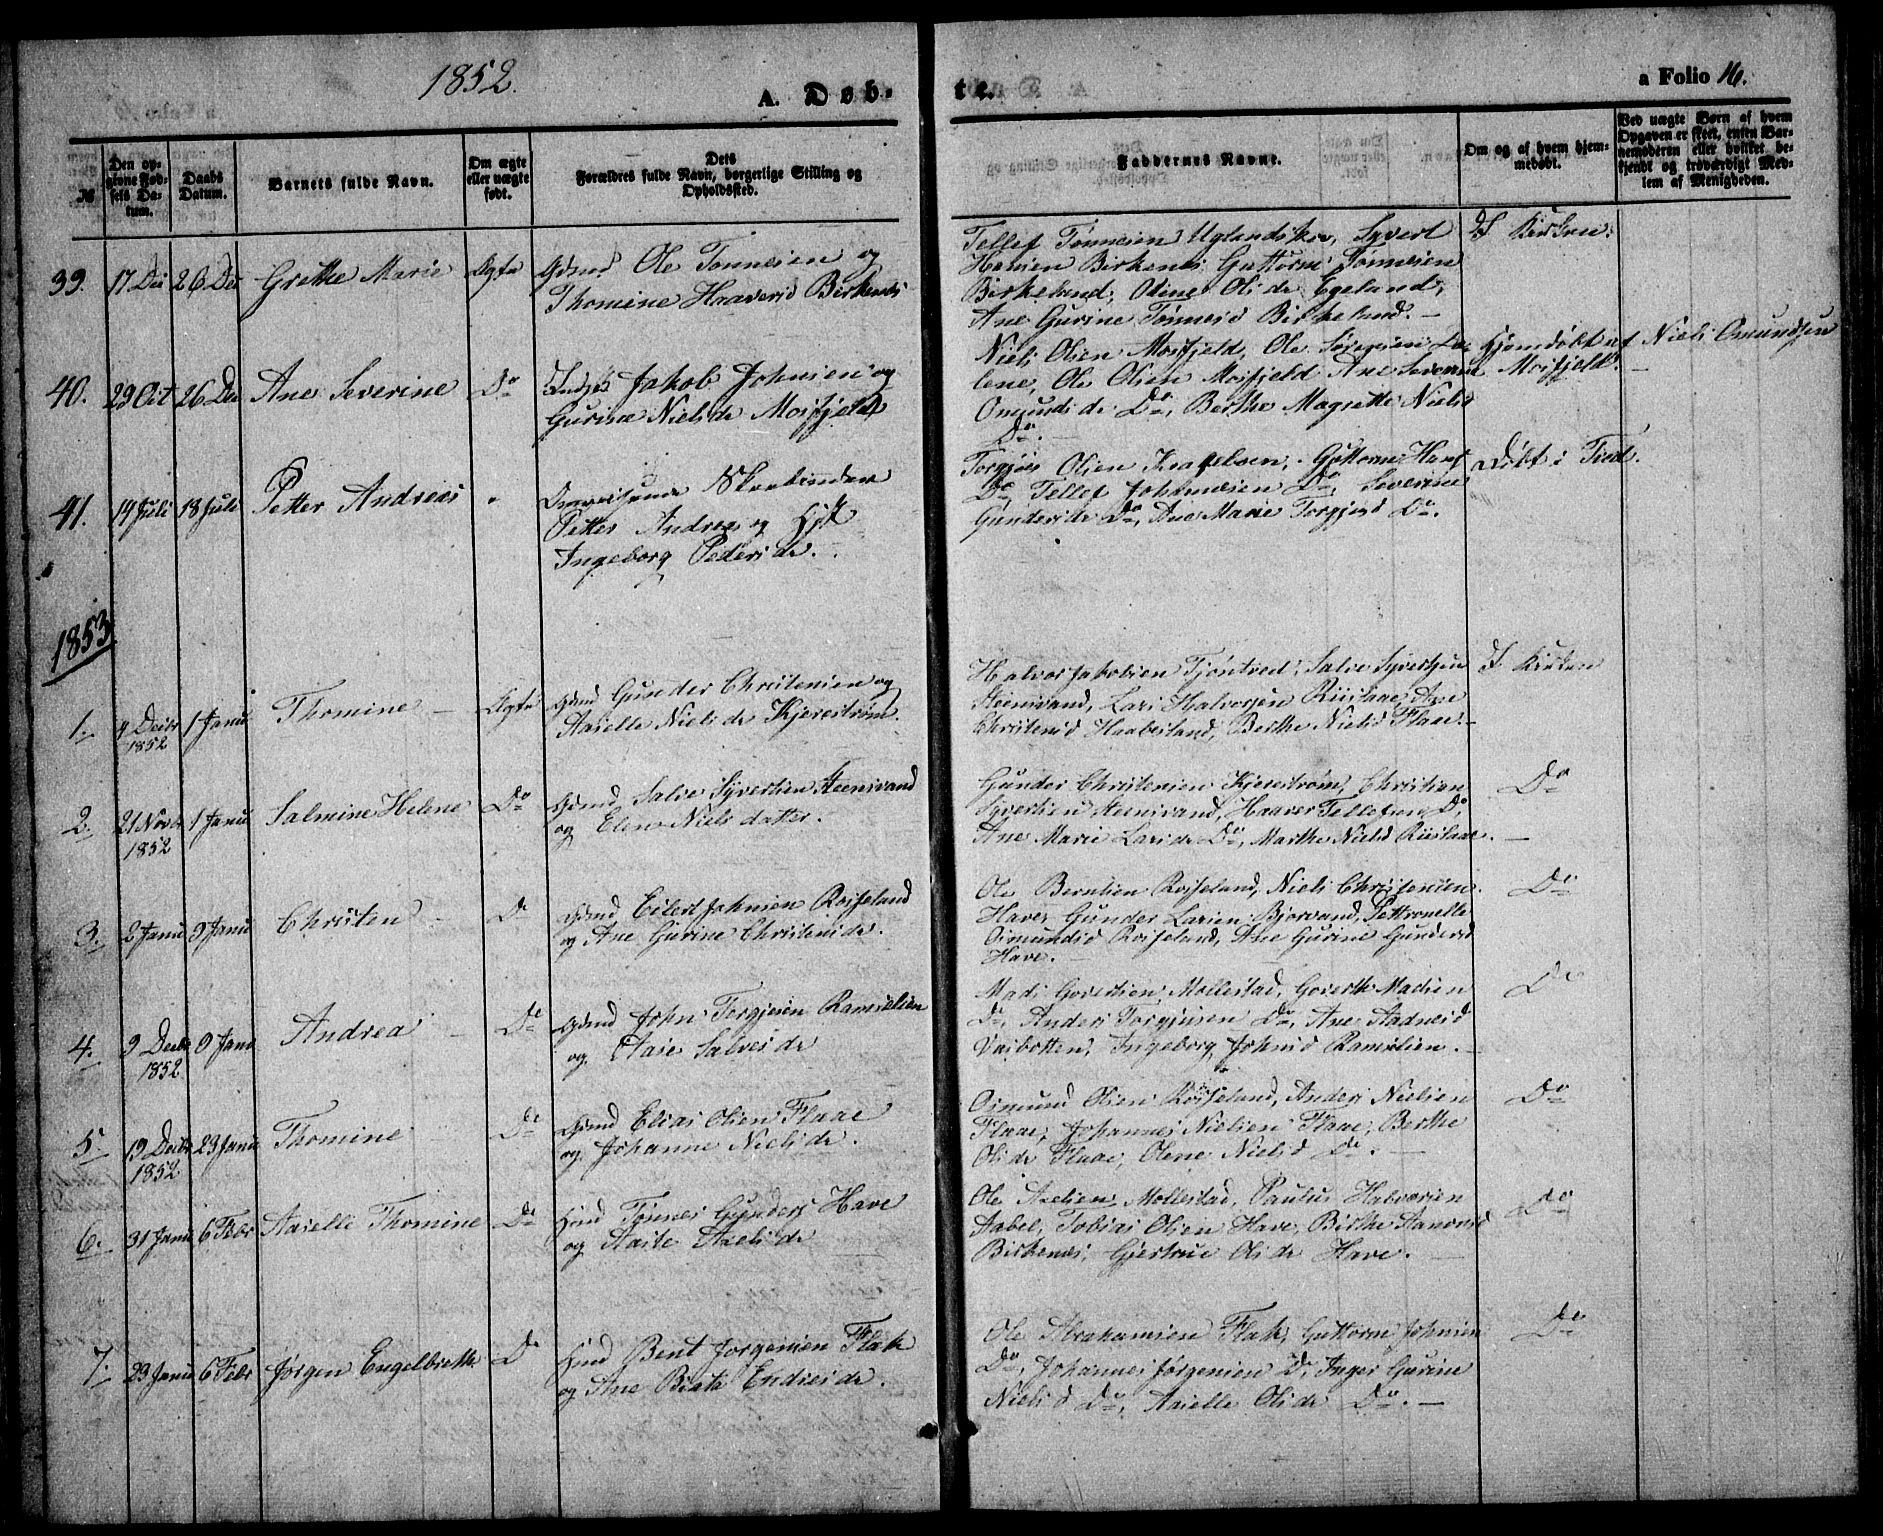 1852.
A. Døb-
te.
a Folio 16.
№
Den opgivne Fødsels Datum.
Daabs Datum.
Barnets fulde Navn.
Om ægte eller uægte født.
Dets Forældres fulde Navn, borgerlige Stilling og Opholdssted.
Faddernes Navne.
Om og af hvem hjemmedøbt.
Ved uægte Børn af hvem Opgaven er skeet, enten Barnemoderen eller hvilket bekjendt og troværdigt Medlem af Menigheden.
39. 17 Dec 26 Dec Grethe Marie Ægte Gdmd Ole Tønnesen og
Thomine Haaversd Birkenes
Tellef Tønnesen Uglandskov, Syvert
Hansen Birkenes, Guttorm Tønnesen
Birkeland, Oline Olsdr Egeland,
Ane Gurine Tønnesd Birkeland. —
I Kirken.
40. 29 Oct 26 Dec Ane Severine Do Jakob Johnsen og
Gurine Nielsdr Mosfjeld
Niels Olsen Mosfjeld, Ole Sørensen
lene, Ole Olsen Mosfjeld Ane Severine
Omundsdr Do, Berthe Magrethe Nielsd
Do. —
Hjemdøbt af Niels Omundsen
Mosfjeld. —
41. 14 Juli 18 Juli Petter Andreas " Skarbinder
Petter Andreas og Hst
Ingeborg Pedersdr.
Torgjus Olsen, Guttorm Hans
Do, Tellef Johannesen Do, Severine
Gundersdr Do, Ane Marie Torgjusd Do.
Døbt i
1853
1. 4 Decbr 1852 1 Janu Thomine — Ægte Gdmd Gunder Christensen og
Aasille Nielsdr Kjerestrøm.
Halvor Jakobsen Tjøntved, Salve Syvertsen
Steensvand, Lars Halvorsen Riislaae, Ane
Christensd Haabesland, Berthe Nielsd Flaae. —
I Kirken
2. 21 Novbr 1852 1 Janu Salmine Helene Do Gdmd Salve Syvertsen Steensvand
og Elen Niels datter.
Gunder Christensen Kjerestrøm, Christian
Syvertsen Steensvand, Haaver Tellefsen Do,
Ane Marie Larsdr Do, Marthe Nielsd Riislaae. —
Do
3. 2 Janu 9 Janu Christen Do Gdmd Eilert Johnsen Roiseland
og Ane Gurine Christensdr.
Ole Berntsen Roiseland, Niels Christensen
Have, Gunder Larsen Bjorvand, Pettronelle
Osmundsd Roiseland, Ane Gurine Gundersd
Have. —
Do
4. 9 Decbr 1852 9 Janu Andrea Do Gdmd John Torgjusen Ramselien
og Aase Salvesdr
Mads Govertsen Mollestad, Goverth Madsen
Do, Anders Torgjusen Do, Ane Aadnesd
Vasbotten, Ingeborg Johnsd Ramslien. —
Do
5. 19 Decbr 1852 23 Janu Thomine Do Gdmd Elias Olsen Flaae
og Johanne Nielsdr.
Osmund Olsen Røiseland, Anders Nielsen
Flaae, Johannes Nielsen Flaae, Berthe
Olsdr Flaae, Olene Nielsd Do. —
Do
6. 31 Janu 6 Febr Aasille Thomine Do Hmd Tønnes Gunders Have
og Aaste Axelsdr
Ole Axelsen Mollestad, Paulus Halvorsen
Aabel, Tobias Olsen Have, Birthe Aanonsd
Birkenes, Gjertrue Olsdr Have. —
Do
7. 23 Janu 6 Febr Jørgen Engelbrethe Do Hmd Bent Jørgensen Flak
og Ane Beate Endresdr.
Ole Abrahamsen Flak, Guttorm Johnsen
Do, Johannes Jørgensen Do, Inger Gurine
Nielsd Do, Aasille Olsdr Do. —
Do